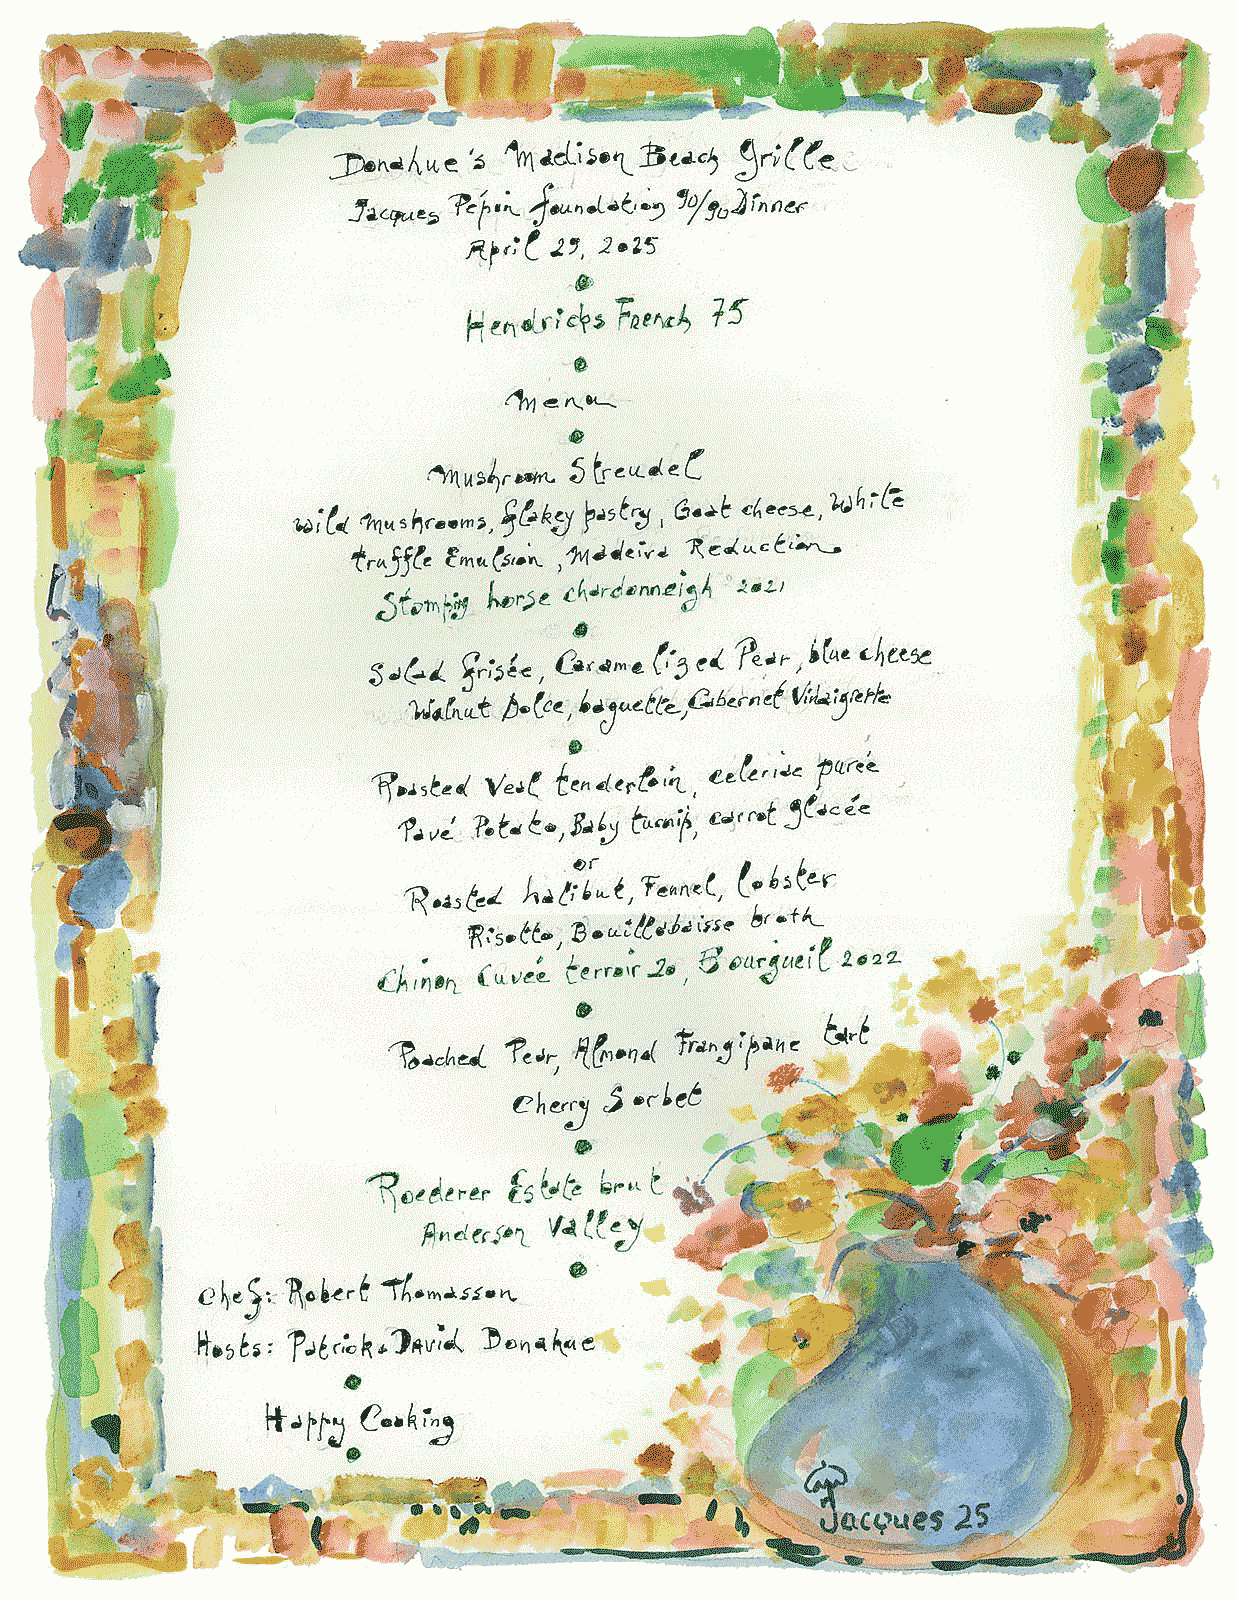 Donahue's Madison Beach Grille
Jacques Pépin foundation 90/90 Dinner
April 29, 2025
Hendricks French 75
Menu
Mushroom Streudel
Wild Mushrooms, flakey pastry, Goat cheese, White
truffle Emulsion, Madeira Reduction
Stomping horse chardonneigh 2021
Salad frisée, Caramelized Pear, blue cheese
Walnut Dolce, baguette, Cabernet Vinaigrette
Roasted Veal tenderloin, celeriac purée
Pavé Potato, Baby turnip, carrot glacée
or
Roasted halibut, Fennel, lobster
Risotto, Bouillabaisse broth
Chinon Cuvée terroir 20, Bourgueil 2022
Poached Pear, Almond Frangipane tart
Cherry Sorbet
Roederer Estate brut
Anderson Valley
Chef: Robert Thomasson
Hosts: Patrick & David Donahue
Happy Cooking
Jacques 25